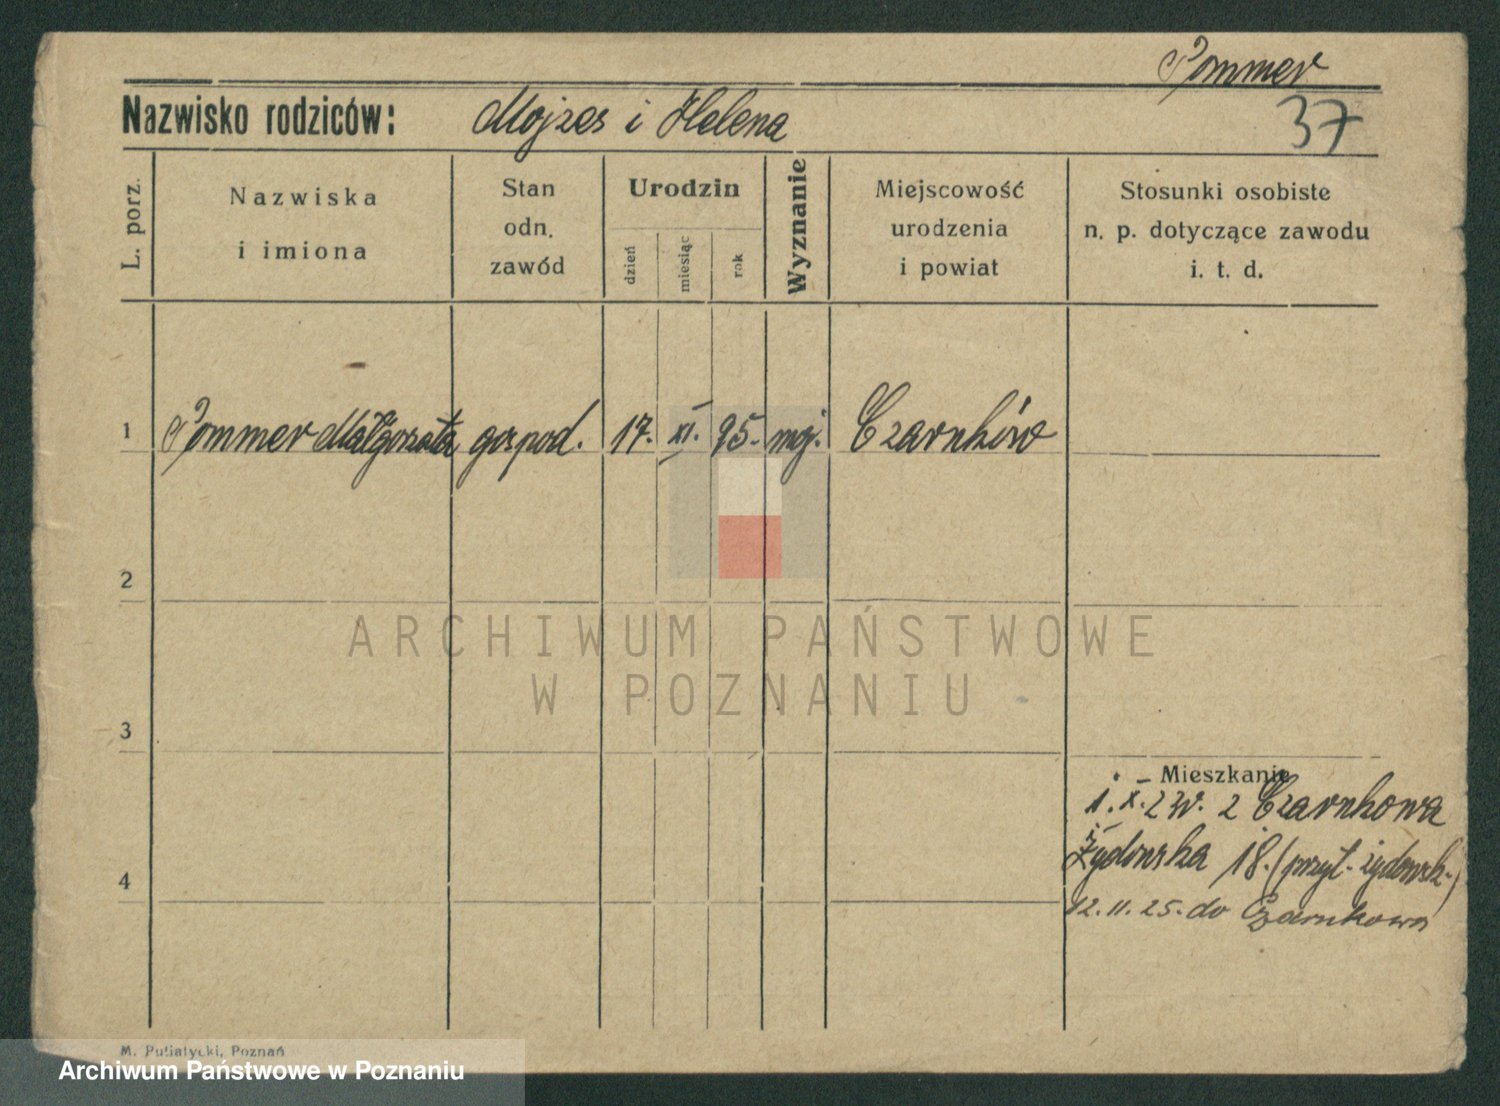 Pommer
Nazwisko rodziców: Mojzes i Helena
37
L. porz.
Nazwiska
i imiona
Stan
odn.
zawód
Urodzin
dzień
miesiąc
rok
Wyznanie
Miejscowość
urodzenia
i powiat
Stosunki osobiste
n. p. dotyczące zawodu
i. t. d.
1 Pommer Małgorzata gospod. 17. XI. 95. moj. Czarnków
2
ARCHIWUM PAŃSTWOWE
W POZNANIU
3
Mieszkanie
1. X. 24. z Czarnkowa
4
Żydowska 18. (przyt. żydowsk.)
12. 11. 25. do Czarnkowa
M. Putiatycki, Poznań
Archiwum Państwowe w Poznaniu